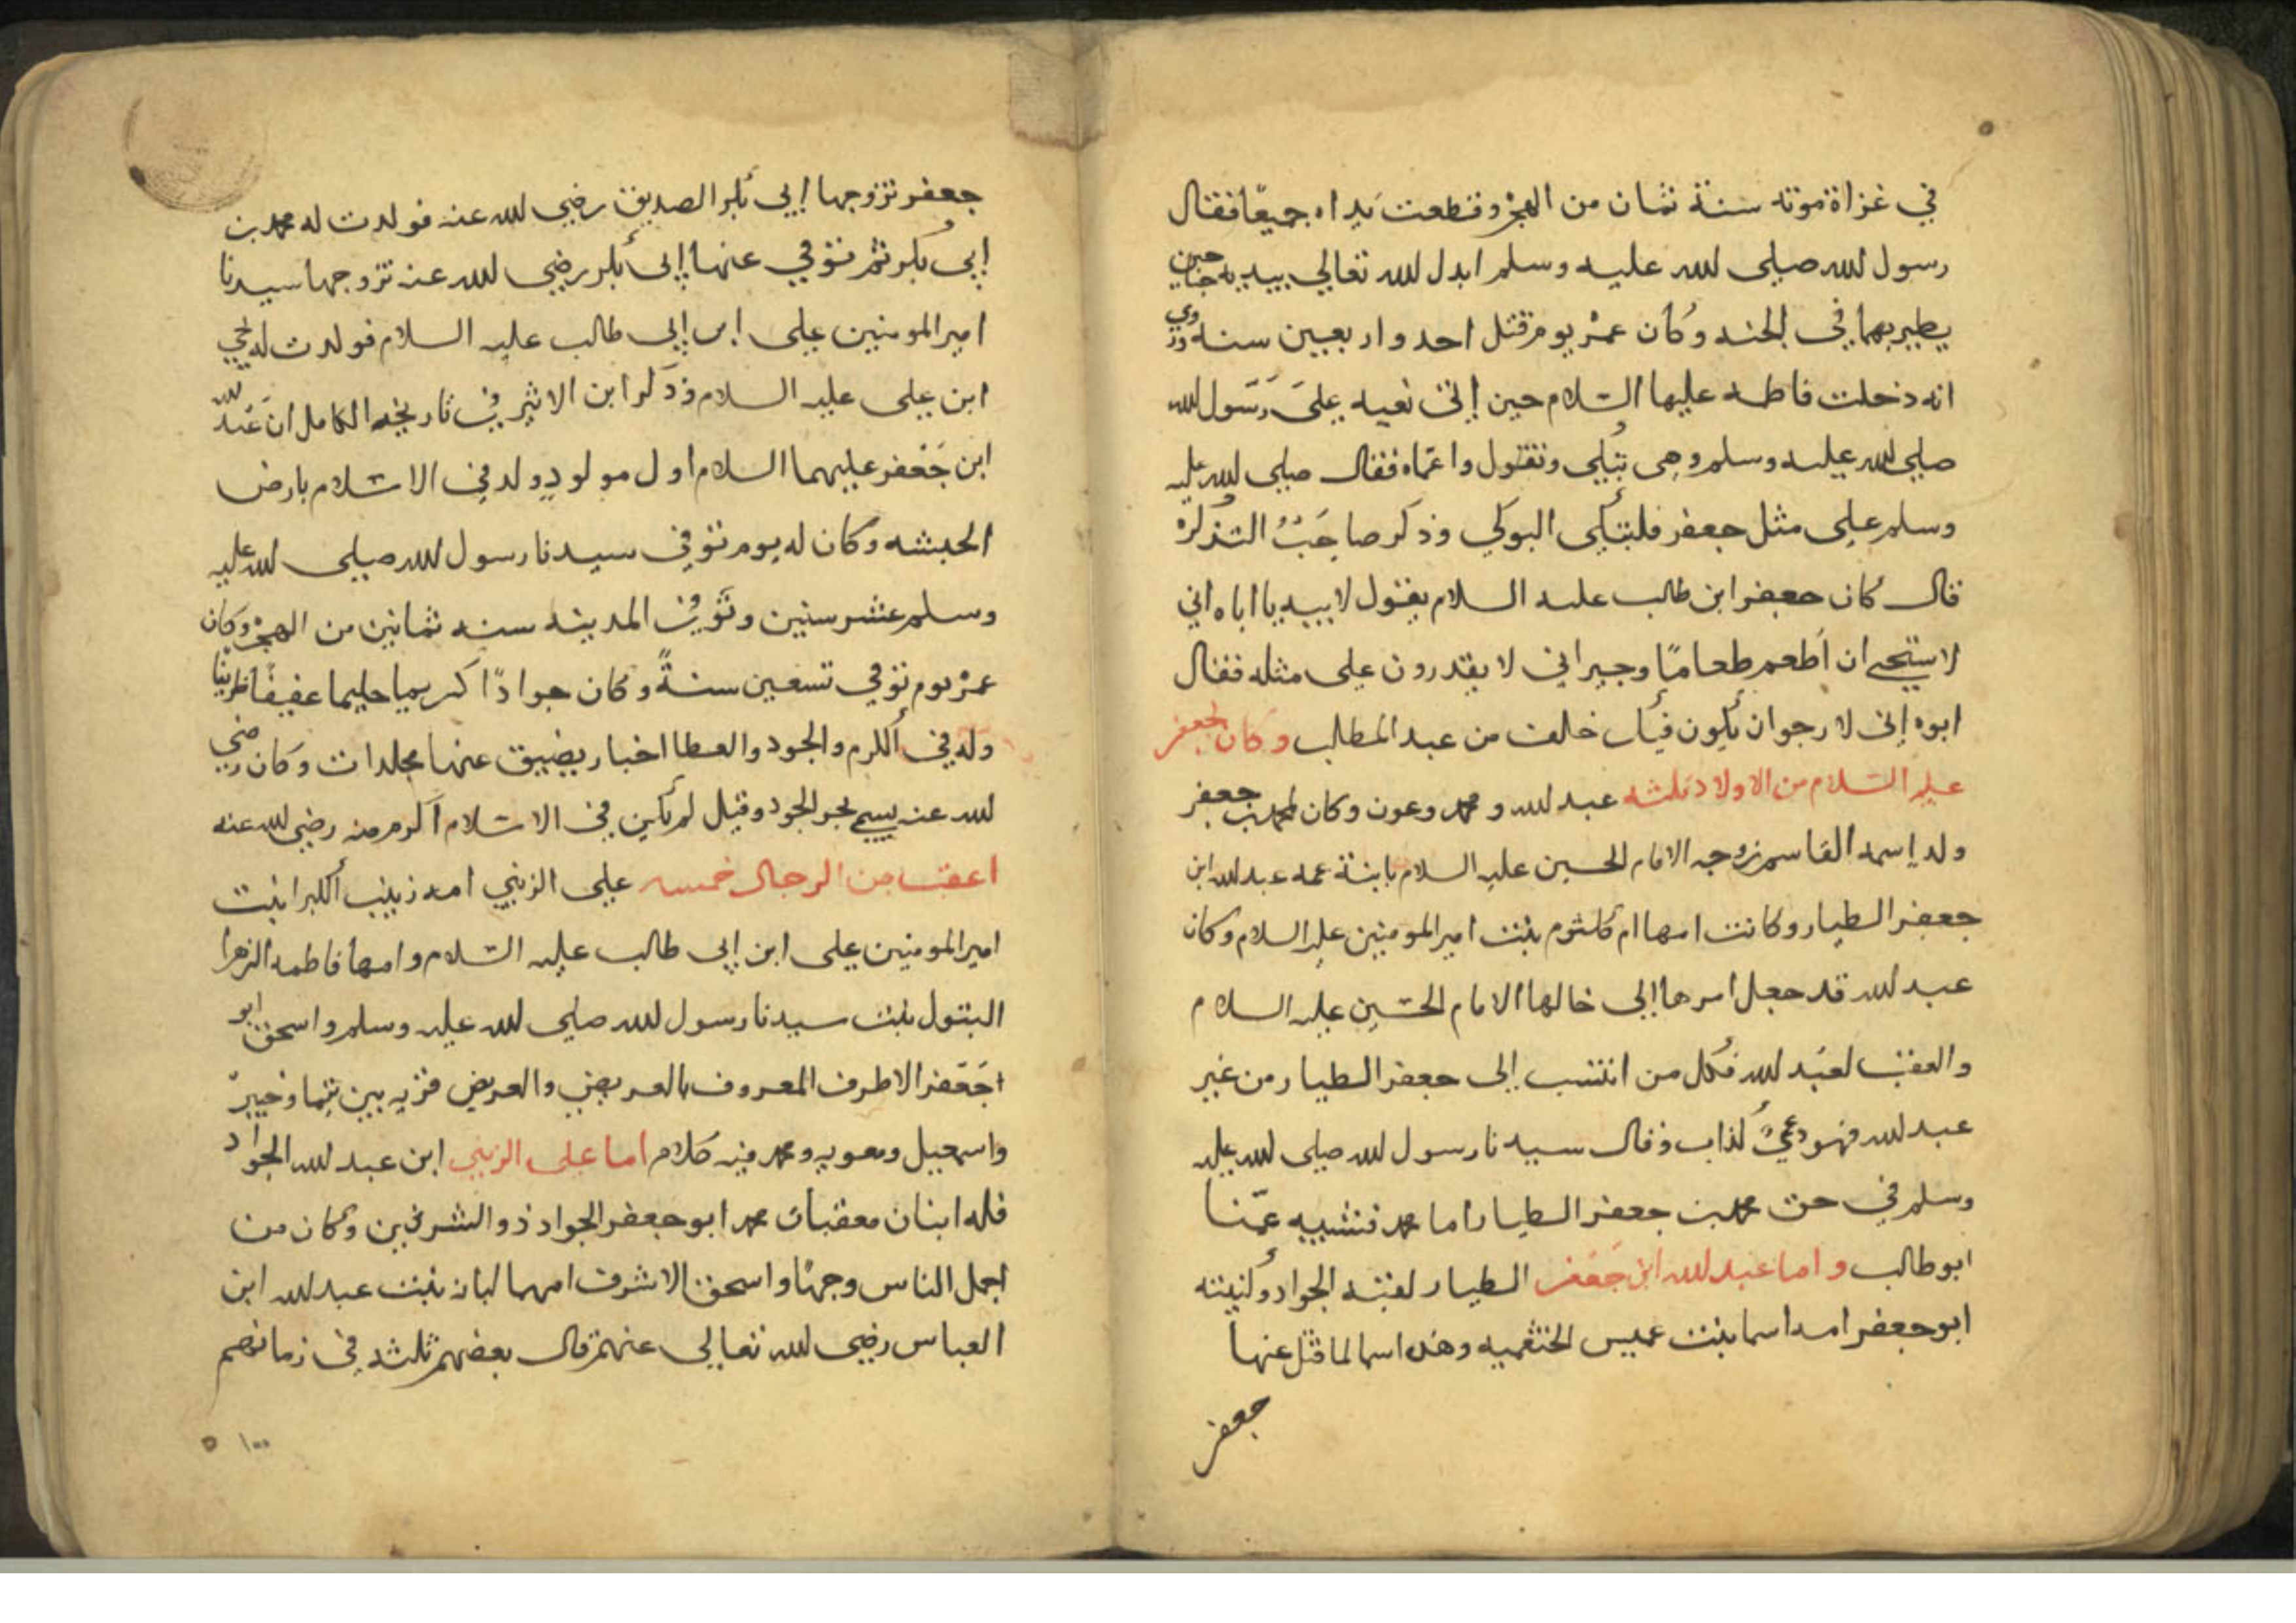 في غزاة موته سنة ثمان من الهجرة وقطعت يداه جميعًا فقال
رسول لله صلى لله عليه وسلم ابدل لله تعالي بيديه جناحين
يطير بهما في الجنه وكان عمره يوم قتل احد واربعين سنه وروي
انه دخلت فاطمه عليها السلام حين إتى نعيه على رسول لله
صلى لله عليه وسلم وهي تبكي وتقول واعماه فقال صلى لله عليه
وسلم على مثل جعفر فلتبكي البوكي وذكر صاحب التذكره
قال كان جعفر ابن طالب عليه السلام يقول لابيه يا اباه اني
لاستحي ان اطعم طعامًا وجيراني لا يقدرون على مثله فقال
ابوه إني لارجوا ان يكون فيك خالف من عبد المطالب وكان لجعفر
عليه السلام من الاولاد ثلثه عبد لله ومحمد وعون وكان لمحمد بن جعفر
ولد إسمه القاسم زوجه الامام الحسين عليه السلام بابنة عمه عبد لله ابن
جعفر الطيار وكانت امها ام كلثوم بنت امير المومنين عليه السلام وكان
عبد لله قد جعل امرها إلى خالها الامام الحسين عليه السلام
والعقب لعبد لله فكل من انتسب إلى جعفر الطيار من غير
عبد لله فهو دعي كذاب وقال سيدنا رسول لله صلى لله عليه
وسلم في حق محمد بن جعفر الطيار اما محمد فشبيه عمنا
ابو طالب واما عبد لله ابن جعفر الطيار لقبه الجواد وكنيته
ابو جعفر امه اسما بنت عميس الخثعميه وهذه اسما لما قتل عنها
جعفر
جعفر تزوجها إبي بكر الصديق رضي لله عنه فولدت له محمد بن
إبي بكر ثم توفي عنها إبي بكر رضي لله عنه تزوجها سيدنا
امير المومنين علي ابن إبي طالب عليه السلام فولدت له يحيى
ابن علي عليه السلام وذكر ابن الاثير في تاريخه الكامل ان عبد لله
ابن جعفر عليهما السلام اول مولودٍ ولد في الاسلام بارض
الحبشه وكان له يوم توفي سيدنا رسول لله صلى لله عليه
وسلم عشر سنين وتوفي في المدينه سنه ثمانين من الهجرة وكان
عمره يوم توفي تسعين سنةً وكان جوادًا كريما حليما عفيفًا ظريفًا
وله في الكرم والجود والعطا اخبار يضيق عنها مجلدات وكان رضي
لله عنه يسمى بحر الجود وقيل لم يكن في الاسلام اكرم منه رضي لله عنه
اعقب من الرجال خمسه علي الزيني امه زينب الكبرا بنت
امير المومنين علي ابن إبي طالب عليه السلام وامها فاطمه الزهرا
البتول بنت سيدنا رسول لله صلى لله عليه وسلم واسحق ابو
جعفر الاطرف المعروف بالعريضي والعريض قريه بين تيما وخيبر
واسمعيل ومعويه ومحمد فيه كلام اما علي الزيني ابن عبد لله الجواد
فله ابنان معقبان محمد ابو جعفر الجواد ذو الشرفين وكان من
اجمل الناس وجهًا واسحق الاشرف امهما لبابه بنت عبد لله ابن
العباس رضي لله تعالى عنهم قال بعضهم ثلثه في زمانهم